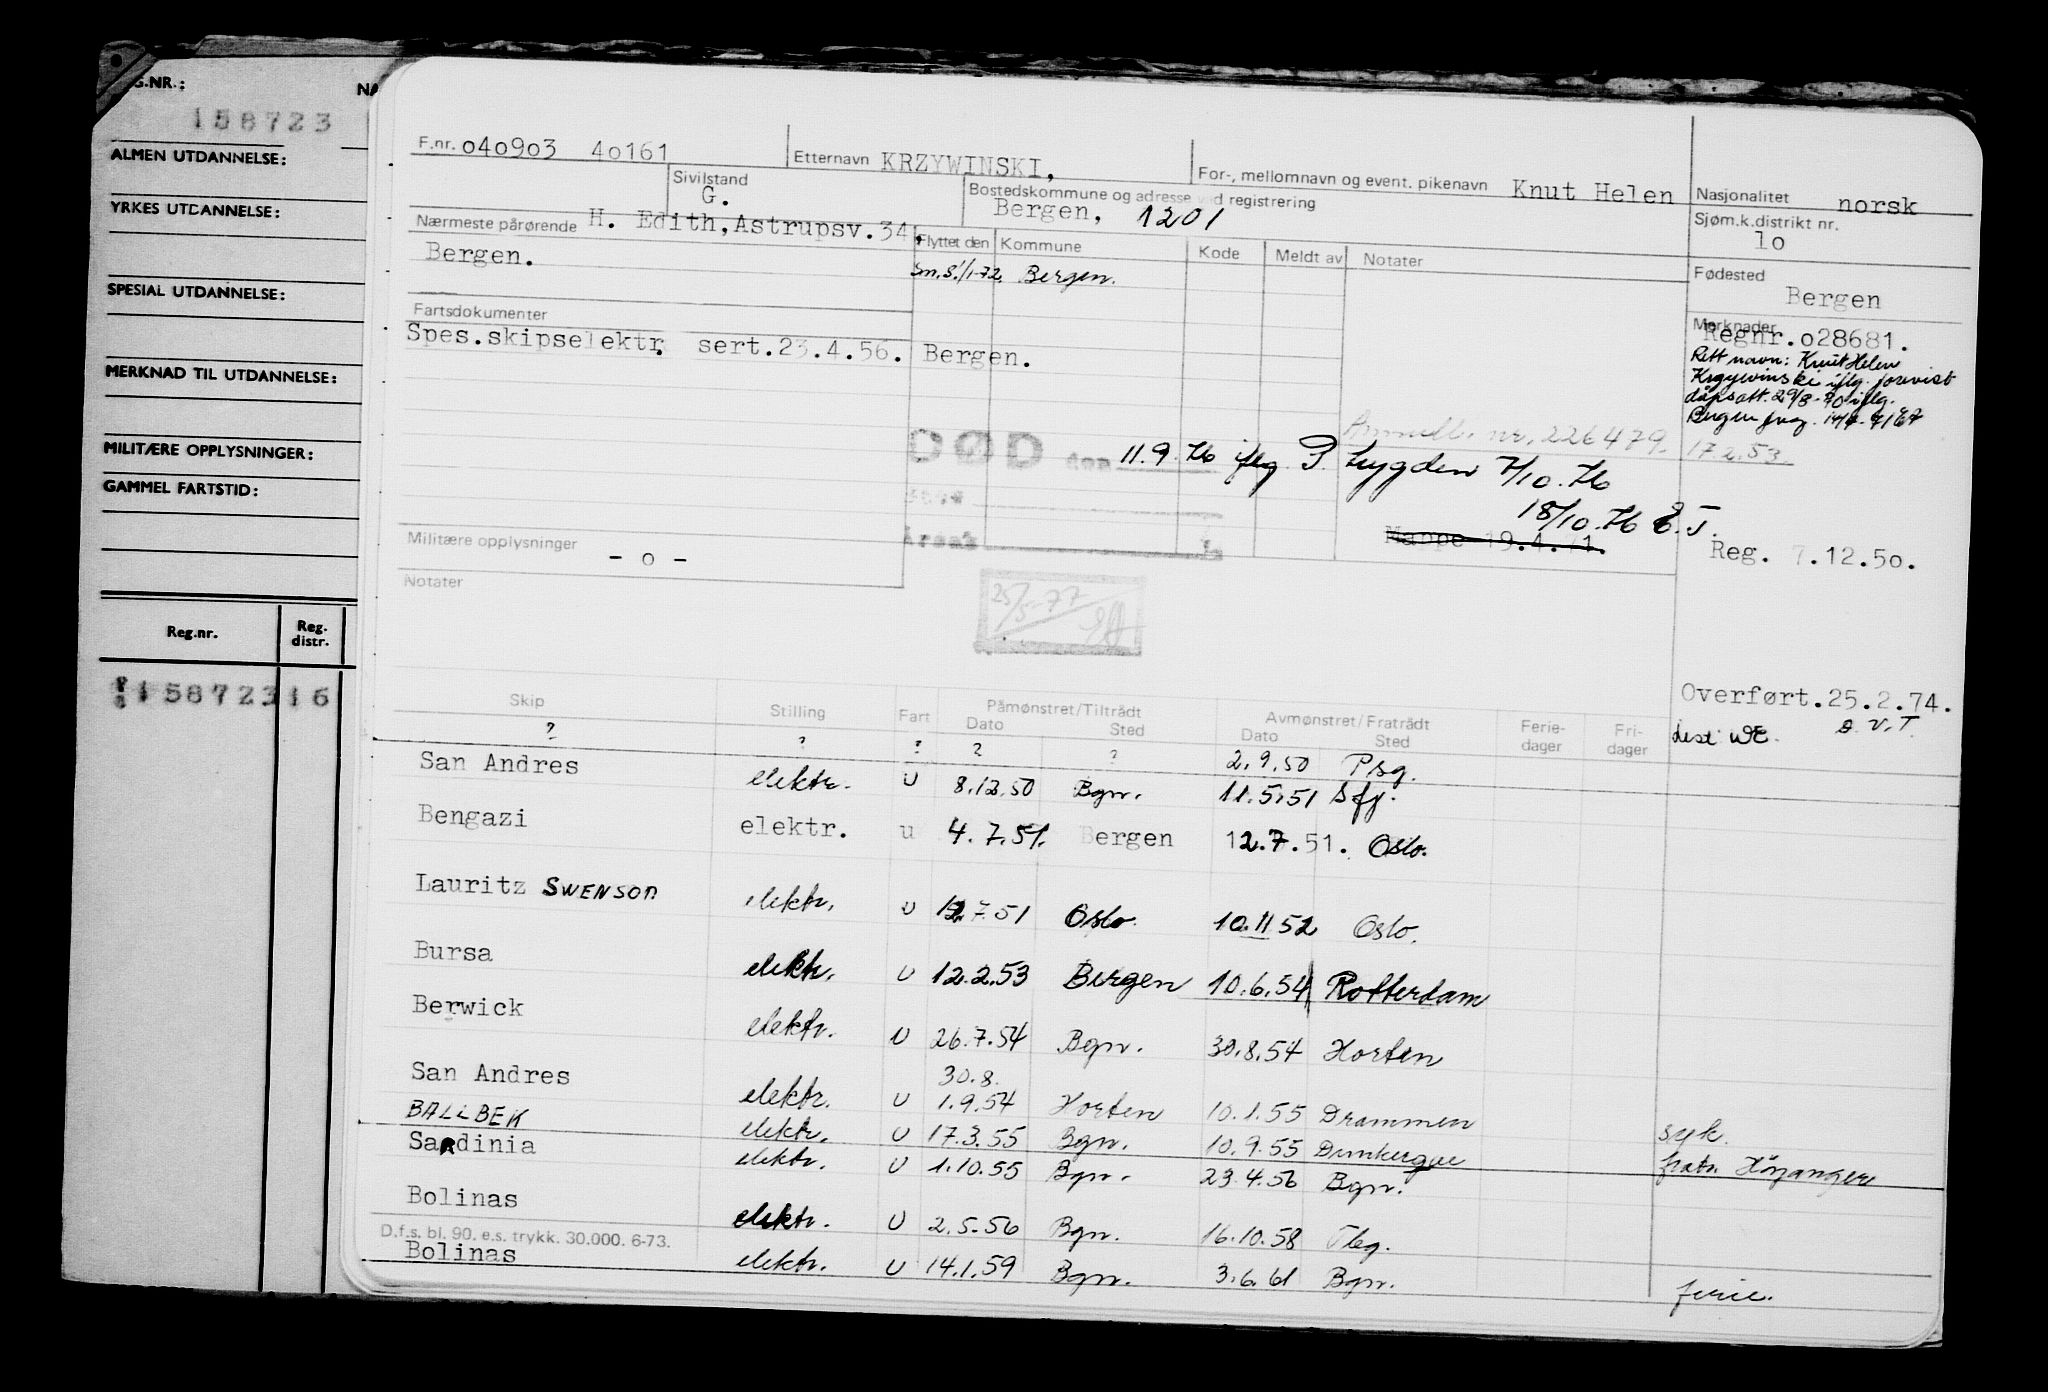 G.NR.:
158723
NA
ALMEN UTDANNELSE:
YRKES UTDANNELSE:
SPESIAL UTDANNELSE:
MERKNAD TIL UTDANNELSE:
MILITÆRE OPPLYSNINGER:
GAMMEL FARTSTID:
Reg.nr. Reg. distr.
158723 16
F.nr. o4o9o3 4o161 Etternavn KRZYWINSKI, For-, mellomnavn og event. pikenavn Knut Helen Nasjonalitet norsk
Sivilstand G. Bostedskommune og adresse ved registrering Bergen, 1201 Sjøm.k.distrikt nr. 1o
Nærmeste pårørende H. Edith, Astrupsv.34,
Bergen.
Flyttet den Kommune Kode Meldt av Notater
Sm.s. 1/1-72 Bergen.
Fødested Bergen
Fartsdokumenter
Spes.skipselektr. sert.23.4.56. Bergen.
Merknader
Regnr.o28681.
Rett navn: Knut Helen
Krzywinski iflg. forevist
dåpsatt. 29/8-
Annull. nr. 226479. 17.2.53.
DØD den 11.9.76 iflg. P. Lygden 7/10.76
18/10.76 E.T.
Årsak
Mappe 19.4.71.
Reg. 7.12.5o.
Militære opplysninger - o -
Notater
25/5-77
Overført.25.2.74.
D.V.T.
Skip Stilling Fart Påmønstret/Tiltrådt Dato Sted Avmønstret/Fratrådt Dato Sted Ferie-dager Fri-dager
? ? ? ? ? 2.9.50 Psg.
San Andres elektr. U 8.12.50 Bgn. 11.5.51 Sfj.
Bengazi elektr. u 4.7.51. Bergen 12.7.51. Oslo.
Lauritz SWENSON elektr. U 12.7.51 Oslo. 10.11.52 Oslo.
Bursa elektr. U 12.2.53 Bergen 10.6.54 Rotterdam
Berwick elektr. U 26.7.54 Bgn. 30.8.54 Horten
San Andres elektr. U 30.8. 1.9.54 Horten 10.1.55 Drammen syk.
BALLBEK elektr. U 17.3.55 Bgn. 10.9.55 Dunkerque fratr. Höyanger
Sardinia elektr. U 1.10.55 Bgn. 23.4.56 Bgn.
Bolinas elektr. U 2.5.56 Bgn. 16.10.58 Tbg.
D.f.s. bl. 90. e.s. trykk. 30.000. 6-73.
Bolinas elektr. U 14.1.59 Bgn. 3.6.61 Bgn. ferie.